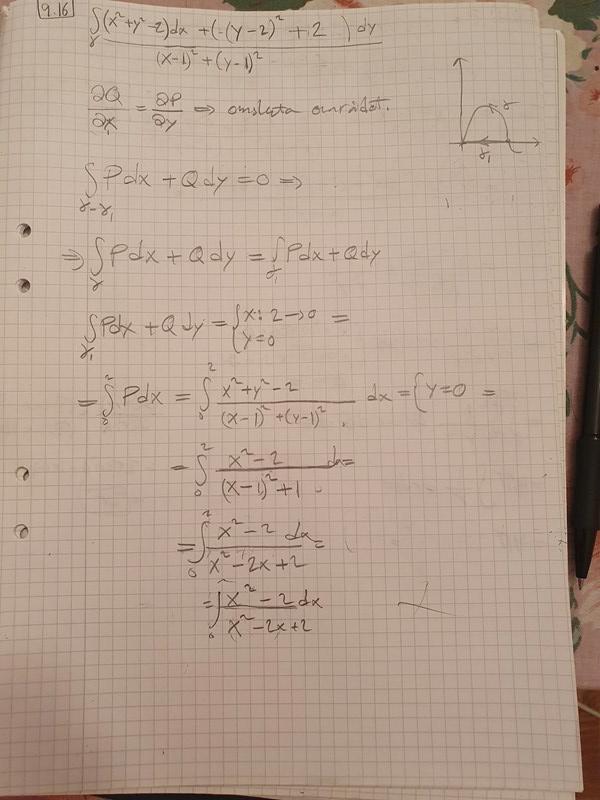 9.16
∫_γ ((x²+y²-2)dx + (-(y-2)²+2)dy) / ((x-1)²+(y-1)²)
∂Q/∂x = ∂P/∂y ⇒ omsluta området.
γ
γ₁
∫_{γ-γ₁} Pdx + Qdy = 0 ⇒
⇒ ∫_γ Pdx + Qdy = ∫_{γ₁} Pdx + Qdy
∫_{γ₁} Pdx + Qdy = { x: 2→0, y=0 =
= ∫₀² Pdx = ∫₀² (x²+y²-2) / ((x-1)²+(y-1)²) dx = { y=0 =
= ∫₀² (x²-2) / ((x-1)²+1) dx =
= ∫₀² (x²-2) / (x²-2x+2) dx =
= ∫₀² (x²-2) / (x²-2x+2) dx